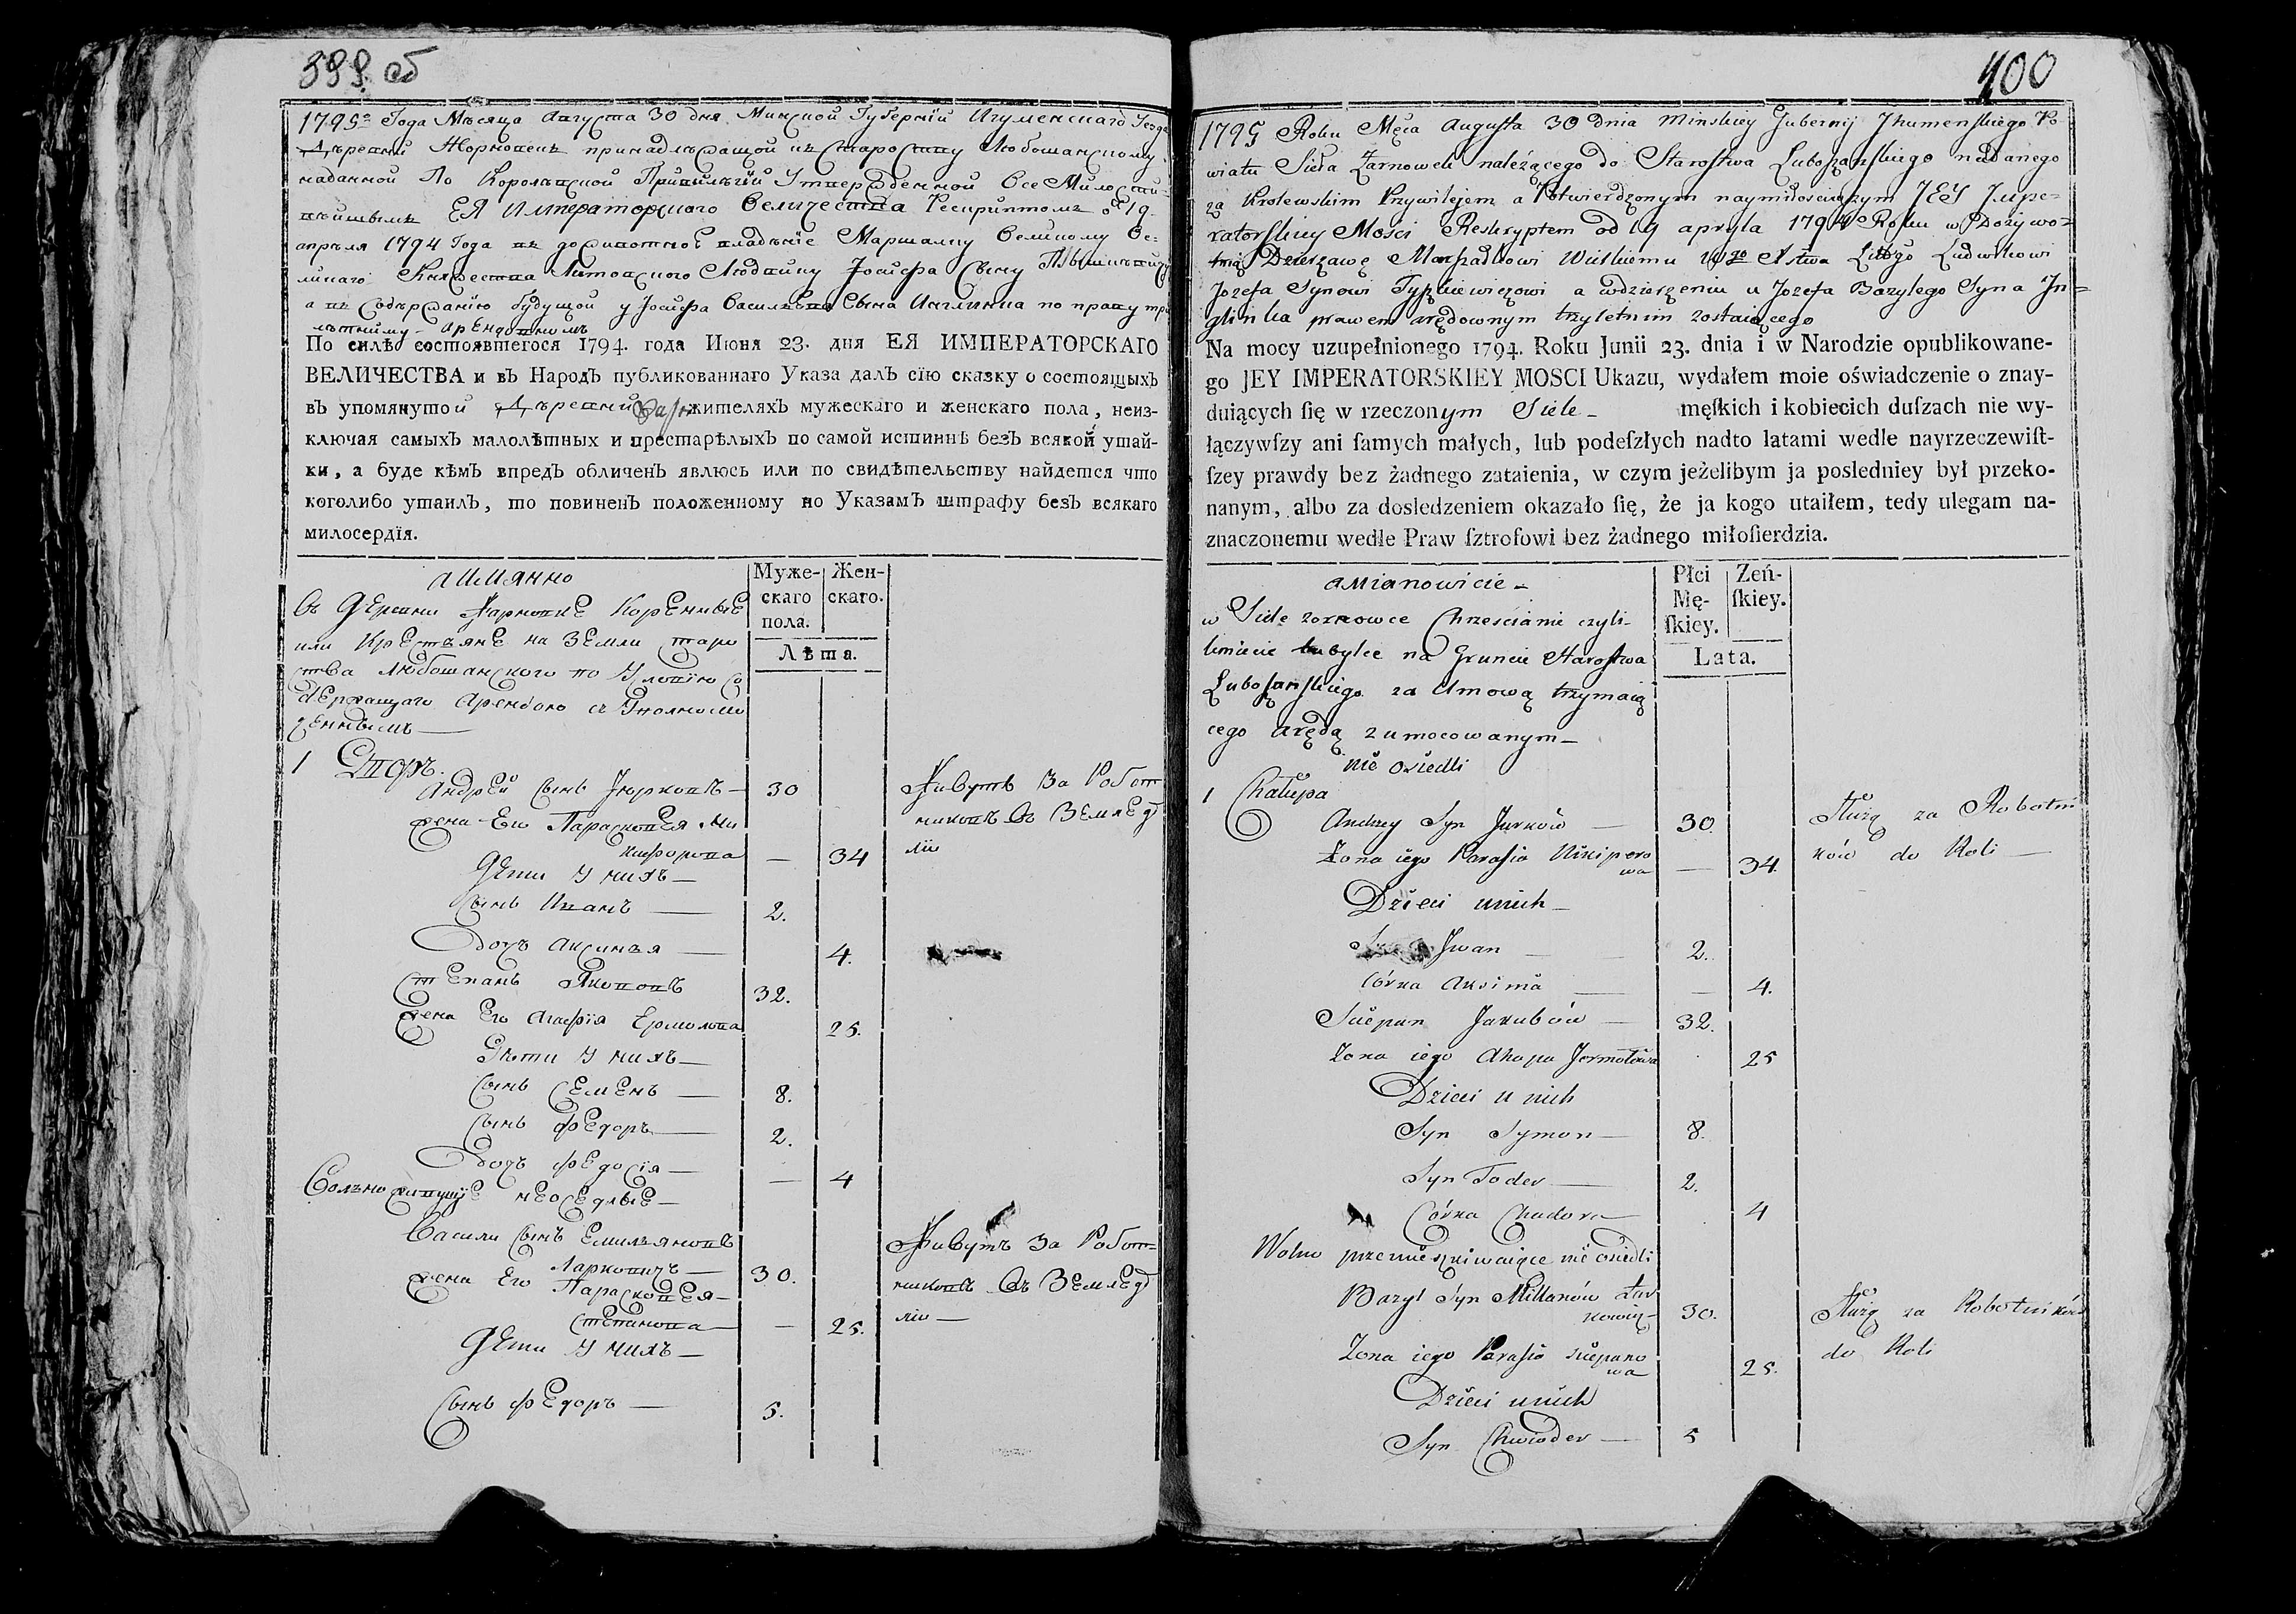 399. об
1795го Года Мѣсяца Августа 30 дня Минской Губернїи Игуменскаго Уезда
Дѣревни Жорновецъ принадлѣжащой къ Староству Любошанскому
наданной По Королѣвской Привилѣгїи Утвержденной Все Милости-
вѣйшымъ ЕЯ Императорскаго Величества Рескриптомъ от 19
апрѣля 1794 Года въ доживотноЕ владѣнїе Маршалку Великому Ве-
ликаго Княжества Литовского Людвику Іосифа Сыну Тышкѣвичу
а въ Содѣржанїю будущой у Іосифа Васильѣва Сына Инглинка по праву трех
лѣтниму Арендовномъ
По силѣ состоявшегося 1794. года Июня 23. дня ЕЯ ИМПЕРАТОРСКАГО
ВЕЛИЧЕСТВА и въ Народъ публикованнаго Указа далъ сїю сказку о состоящыхъ
въ упомянутой Дѣревни жителяхъ мужескаго и женскаго пола, неиз-
ключая самыхъ малолѣтныхъ и престарѣлыхъ по самой истиннѣ безъ всякой утай-
ки, а буде кѣмъ впредъ обличенъ явлюсь или по свидѣтельству найдется что
коголибо утаилъ, то повиненъ положенному по Указамъ штрафу безъ всякаго
милосердїя.
аИмянно
Муже-
скаго
пола.
Жен-
скаго.
Лѣта.
Въ Деревни ЖарновкЕ КорЕнныЕ
или КрЕстьянЕ на ЗЕмли старо
ства Любошанского по Условїю со
дЕржащаго Арендою съ Уполномо
чЕннымъ —
1 Дворъ.
Андрей Сынъ Юрковъ — 30
Живутъ За Работ
никовъ въ ЗЕмлЕдѣ
лїи
жена Его ПараскопЕя Ни
кифорова — 34
ДЕти У нихъ —
Сынъ Иванъ — 2.
Дочъ Аксинья — 4.
СтЕпанъ Якововъ 32.
жена Его Агафїя Ермолова 25.
Дѣти У нихъ —
Сынъ СЕмЕнъ — 8.
Сынъ ФЕдоръ — 2.
Дочъ ФЕдосїя — — 4
Вольно живущїЕ нЕосЕдлыЕ —
Васили Сынъ Емильяновъ
Ларковичъ — 30.
Живутъ За Работ-
никовъ Въ ЗЕмлЕдѣ
лїи —
жена Его ПараскопЕя —
Степанова — — 25.
ДЕти У нихъ —
Сынъ ФЕдоръ — 5.
400
1795 Roku Męca Augusta 30 Dnia Minskiey Gubernij Jhumenskiego Po-
wiatu Sieła Żarnowek należącego do Starostwa Luboszanskiego nadanego
za Krolewskim Przywilejem a Potwierdzonym naymiłościwszym JEY Jmpe-
ratorskiey Mości Reskryptem od 19 apryla 1794 Roku w Dożywo-
tnią Dzierżawę Marszałkowi Wielkiemu Wgo Xstwa Littgo Ludwikowi
Jozefa Synowi Tyszkiewiczowi a wdzierżeniu u Jozefa Bazylego Syna Jn-
glinka prawem arędownym trzyletnim zostaiącego
Na mocy uzupełnionego 1794. Roku Junii 23. dnia i w Narodzie opublikowane-
go JEY IMPERATORSKIEY MOSCI Ukazu, wydałem moie oświadczenie o znay-
duiących ſię w rzeczonym Siele - męſkich i kobiecich duſzach nie wy-
łączywſzy ani ſamych małych, lub podeſzłych nadto latami wedle nayrzeczewiſt-
ſzey prawdy bez żadnego zataienia, w czym jeżelibym ja posledniey był przeko-
nanym, albo za dosledzeniem okazało ſię, że ja kogo utaiłem, tedy ulegam na-
znaczonemu wedle Praw ſztrofowi bez żadnego miłoſierdzia.
amianowicie -
Płci
Mę-
ſkiey.
Zeń-
ſkiey.
Lata.
w Siele zornowce Chrzescianie czyli
kmiecie tubylce na Gruncie Starostwa
Luboszanskiego za Umową trzymaią
cego arędą zumocowanym -
nie osiedli
1 Chałupa
Andrzy Syn Jurków — 30.
Służą za Robotni
ków do Roli —
Żona iego Parasia Nikipero
wa — 34.
Dzieci unich -
Jwan — 2.
Córka Aksima — — 4.
Sciepan Jakubów — 32.
Żona iego Ahapa Jermołowa 25
Dzieci u nich
Syn Symon — 8.
Syn Todor — 2.
Córka Chadora 4
Wolno przemieszkiwaiące nie osiedli
Bazyl Syn Millanów Lar
kowicz - 30.
Służą za Robotników
do Roli
Żona iego Parasia Sciepano
wa 25.
Dzieci unich
Syn Chwiodor — 5